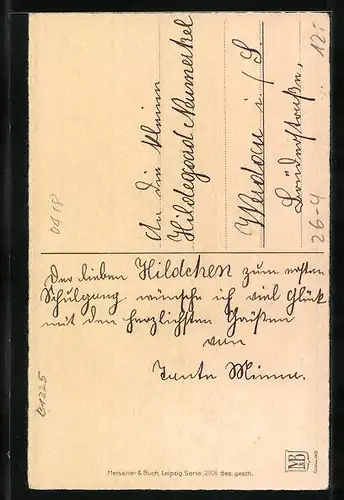 An die kleine
Hildegard Neumerkel
Werdau i/S.
Brüderstraße,
26-4
12.-
0418
Der lieben Hildchen zum ersten
Schulgang wünsche ich viel Glück
mit den herzlichsten Grüßen
von
Tante Minna.
B1225
Meissner & Buch, Leipzig Serie 2906 Ges. gesch.
M&B